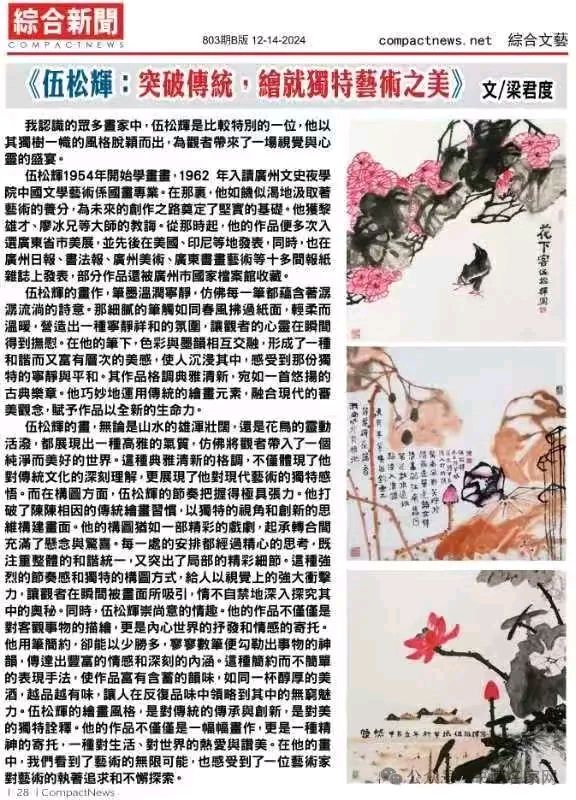 綜合新聞
COMPACTNEWS
803期B版 12-14-2024
compactnews.net 綜合文藝
《伍松輝：突破傳統，繪就獨特藝術之美》 文/梁君度
我認識的眾多畫家中，伍松輝是比較特別的一位，他以
其獨樹一幟的風格脫穎而出，為觀者帶來了一場視覺與心
靈的盛宴。
伍松輝1954年開始學畫畫，1962 年入讀廣州文史夜學
院中國文學藝術係國畫專業。在那裏，他如饑似渴地汲取著
藝術的養分，為未來的創作之路奠定了堅實的基礎。他獲黎
雄才、廖冰兄等大師的教誨。從那時起，他的作品便多次入
選廣東省市美展，並先後在美國、印尼等地發表，同時，也在
廣州日報、書法報、廣州美術、廣東書畫藝術等十多間報紙
雜誌上發表，部分作品還被廣州市國家檔案館收藏。
伍松輝的畫作，筆墨溫潤寧靜，仿佛每一筆都蘊含著潺
潺流淌的詩意。那細膩的筆觸如同春風拂過紙面，輕柔而
溫暖，營造出一種寧靜祥和的氛圍，讓觀者的心靈在瞬間
得到撫慰。在他的筆下，色彩與墨韻相互交融，形成了一種
和諧而又富有層次的美感，使人沉浸其中，感受到那份獨
特的寧靜與平和。其作品格調典雅清新，宛如一首悠揚的
古典樂章。他巧妙地運用傳統的繪畫元素，融合現代的審
美觀念，賦予作品以全新的生命力。
伍松輝的畫，無論是山水的雄渾壯闊，還是花鳥的靈動
活潑，都展現出一種高雅的氣質，仿佛將觀者帶入了一個
純淨而美好的世界。這種典雅清新的格調，不僅體現了他
對傳統文化的深刻理解，更展現了他對現代藝術的獨特感
悟。而在構圖方面，伍松輝的節奏把握得極具張力。他打
破了陳陳相因的傳統繪畫習慣，以獨特的視角和創新的思
維構建畫面。他的構圖猶如一部精彩的戲劇，起承轉合間
充滿了懸念與驚喜。每一處的安排都經過精心的思考，既
注重整體的和諧統一，又突出了局部的精彩細節。這種強
烈的節奏感和獨特的構圖方式，給人以視覺上的強大衝擊
力，讓觀者在瞬間被畫面所吸引，情不自禁地深入探究其
中的奧秘。同時，伍松輝崇尚意的情趣。他的作品不僅僅是
對客觀事物的描繪，更是內心世界的抒發和情感的寄托。
他用筆簡約，卻能以少勝多，寥寥數筆便勾勒出事物的神
韻，傳達出豐富的情感和深刻的內涵。這種簡約而不簡單
的表現手法，使作品富有含蓄的韻味，如同一杯醇厚的美
酒，越品越有味，讓人在反復品味中領略到其中的無窮魅
力。伍松輝的繪畫風格，是對傳統的傳承與創新，是對美
的獨特詮釋。他的作品不僅僅是一幅幅畫作，更是一種精
神的寄托，一種對生活、對世界的熱愛與讚美。在他的畫
中，我們看到了藝術的無限可能，也感受到了一位藝術家
對藝術的執著追求和不懈探索。
花下客
| 28 | CompactNews